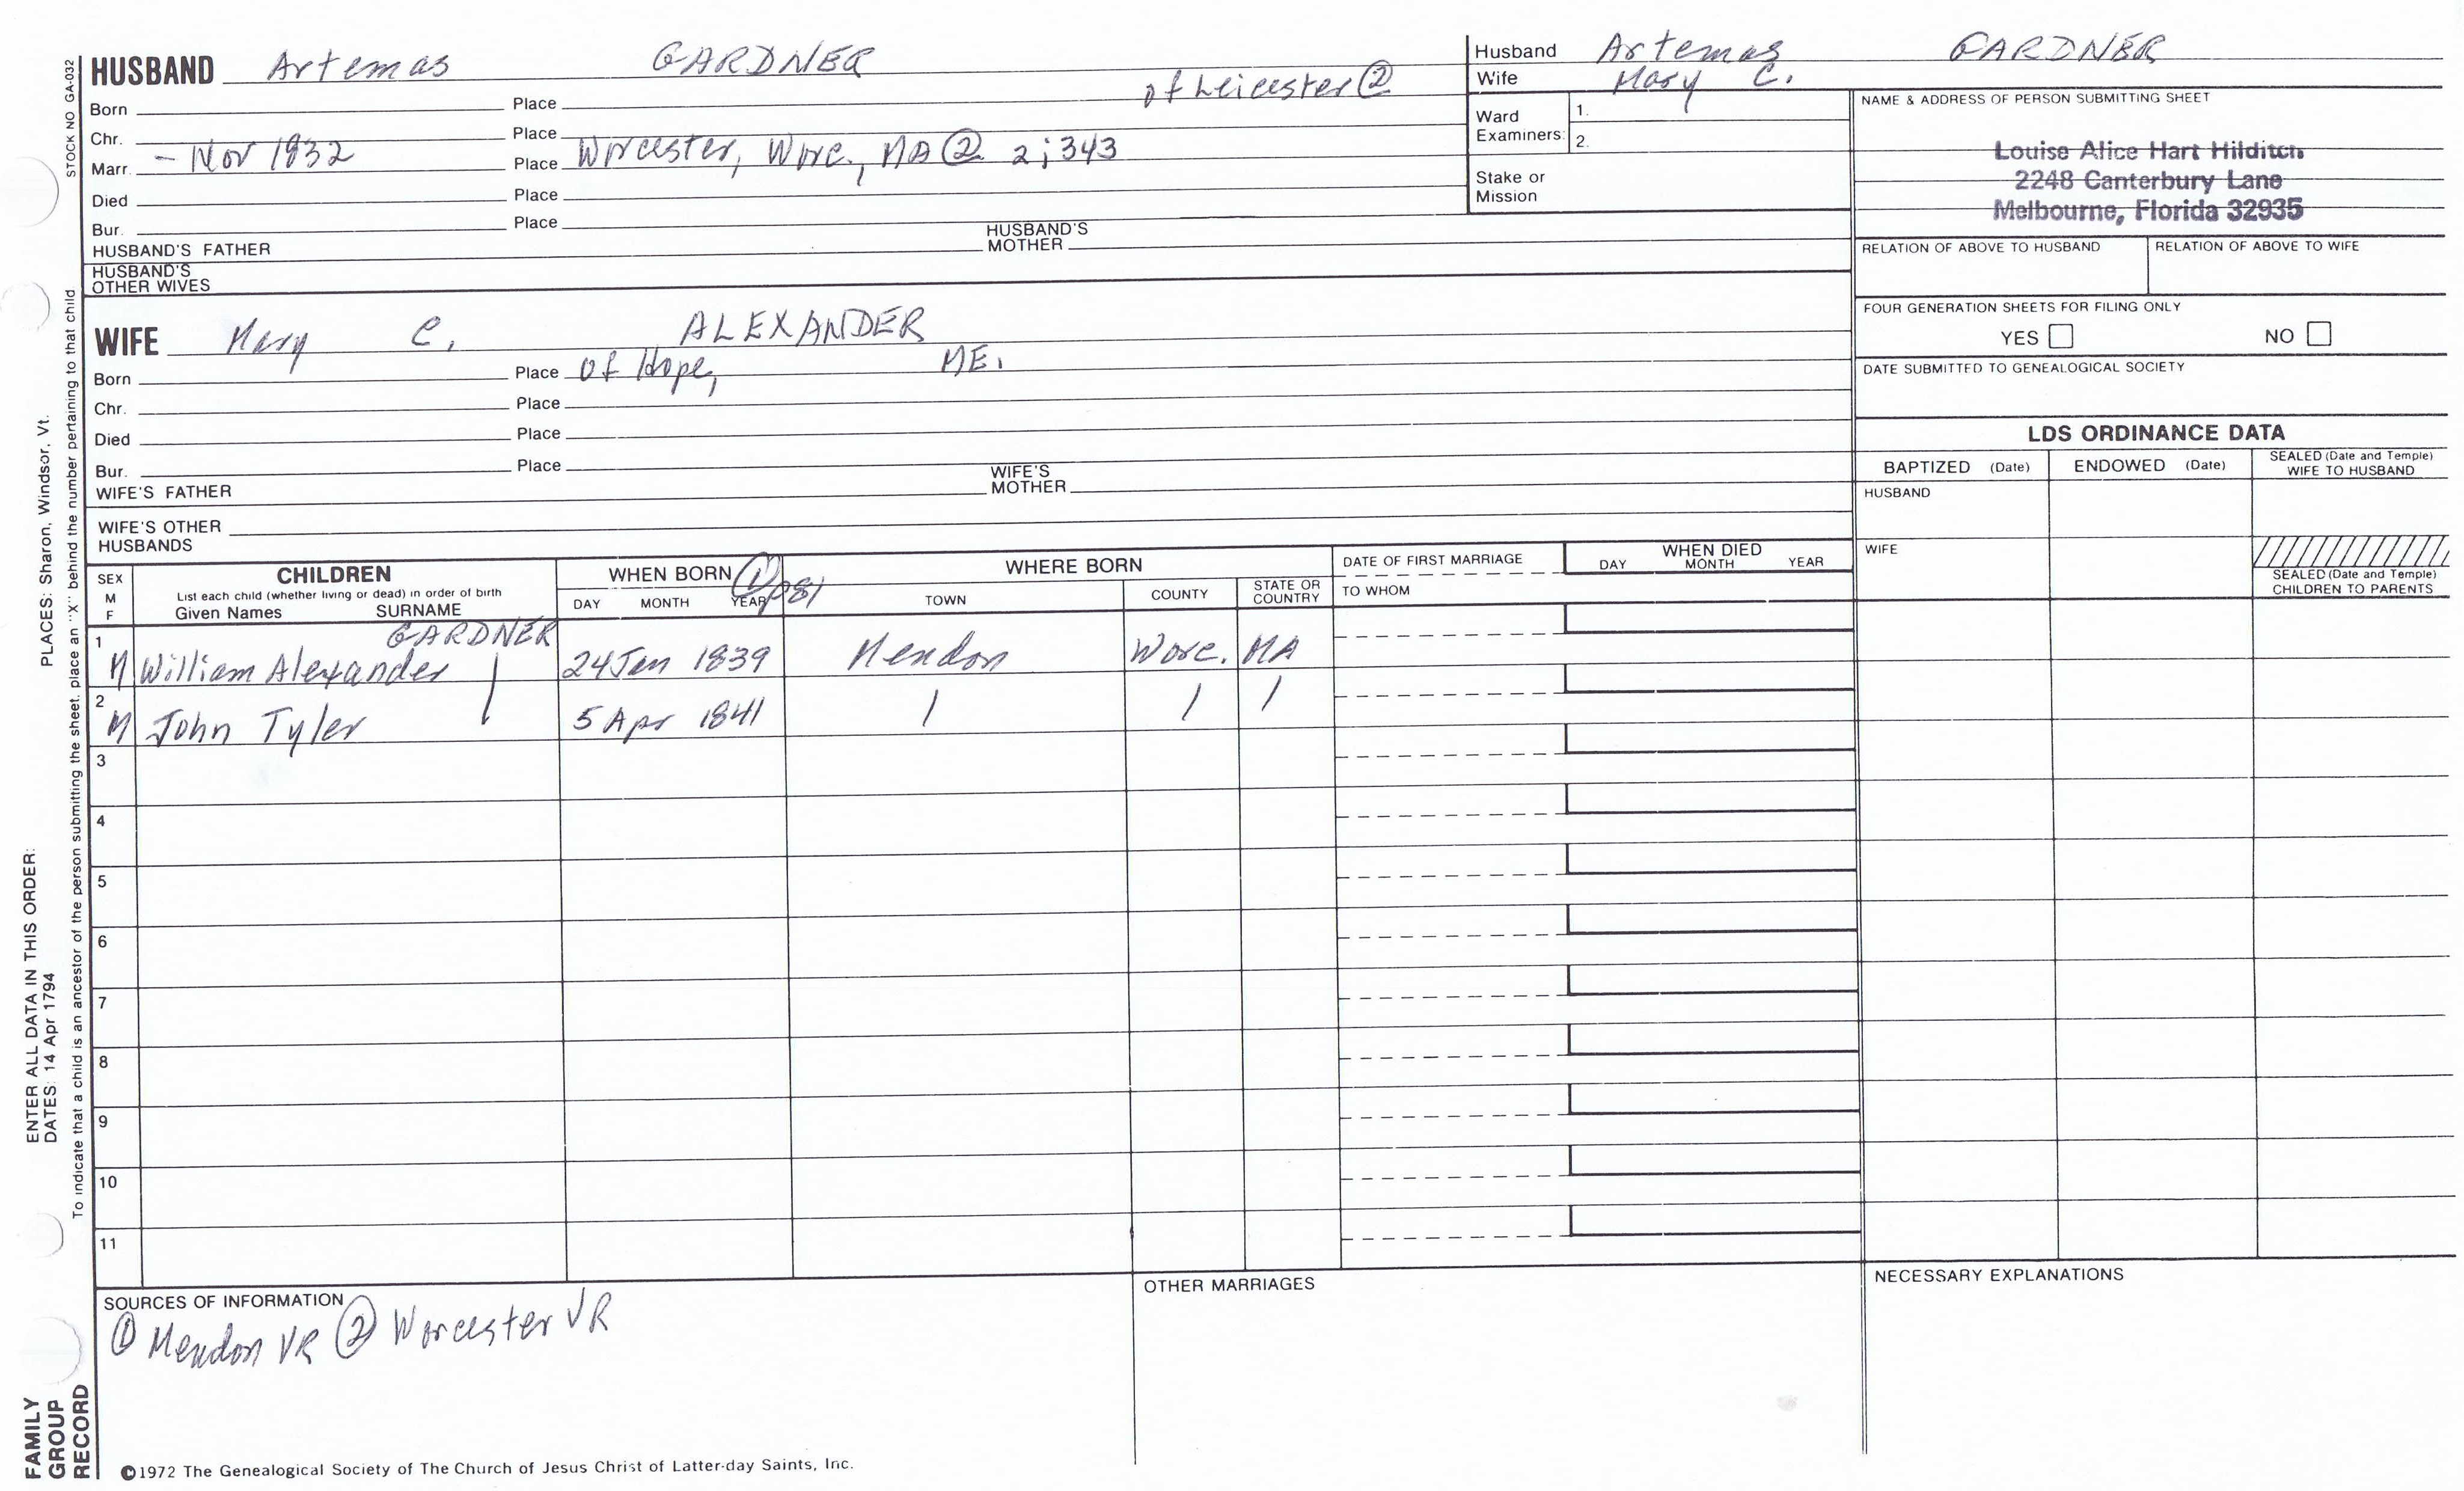 STOCK NO GA-032
HUSBAND Artemas GARDNER
of Leicester ②
Born Place
Chr. Place
Marr. - Nov 1832 Place Worcester, Worc., MA ② 2; 343
Died Place
Bur. Place
HUSBAND'S FATHER HUSBAND'S MOTHER
HUSBAND'S
OTHER WIVES
WIFE Mary C. ALEXANDER
Born Place Of Hope, ME.
Chr. Place
Died Place
Bur. Place
WIFE'S FATHER WIFE'S MOTHER
WIFE'S OTHER
HUSBANDS
Husband Artemas GARDNER
Wife Mary C.
Ward
Examiners: 1.
2.
Stake or
Mission
NAME & ADDRESS OF PERSON SUBMITTING SHEET
Louise Alice Hart Hilditch
2248 Canterbury Lane
Melbourne, Florida 32935
RELATION OF ABOVE TO HUSBAND RELATION OF ABOVE TO WIFE
FOUR GENERATION SHEETS FOR FILING ONLY
YES NO
DATE SUBMITTED TO GENEALOGICAL SOCIETY
LDS ORDINANCE DATA
BAPTIZED (Date) ENDOWED (Date) SEALED (Date and Temple) WIFE TO HUSBAND
HUSBAND
WIFE
SEALED (Date and Temple)
CHILDREN TO PARENTS
SEX
M
F
CHILDREN
List each child (whether living or dead) in order of birth
Given Names SURNAME
WHEN BORN ① p81
DAY MONTH YEAR
WHERE BORN
TOWN COUNTY STATE OR COUNTRY
DATE OF FIRST MARRIAGE
TO WHOM
WHEN DIED
DAY MONTH YEAR
GARDNER
1 M William Alexander | 24 Jan 1839 Mendon Worc. MA
2 M John Tyler 5 Apr 1841 | | |
3
4
5
6
7
8
9
10
11
SOURCES OF INFORMATION
① Mendon VR ② Worcester VR
OTHER MARRIAGES
NECESSARY EXPLANATIONS
©1972 The Genealogical Society of The Church of Jesus Christ of Latter-day Saints, Inc.
FAMILY
GROUP
RECORD
ENTER ALL DATA IN THIS ORDER:
DATES: 14 Apr 1794
PLACES: Sharon, Windsor, Vt.
To indicate that a child is an ancestor of the person submitting the sheet, place an "X" behind the number pertaining to that child